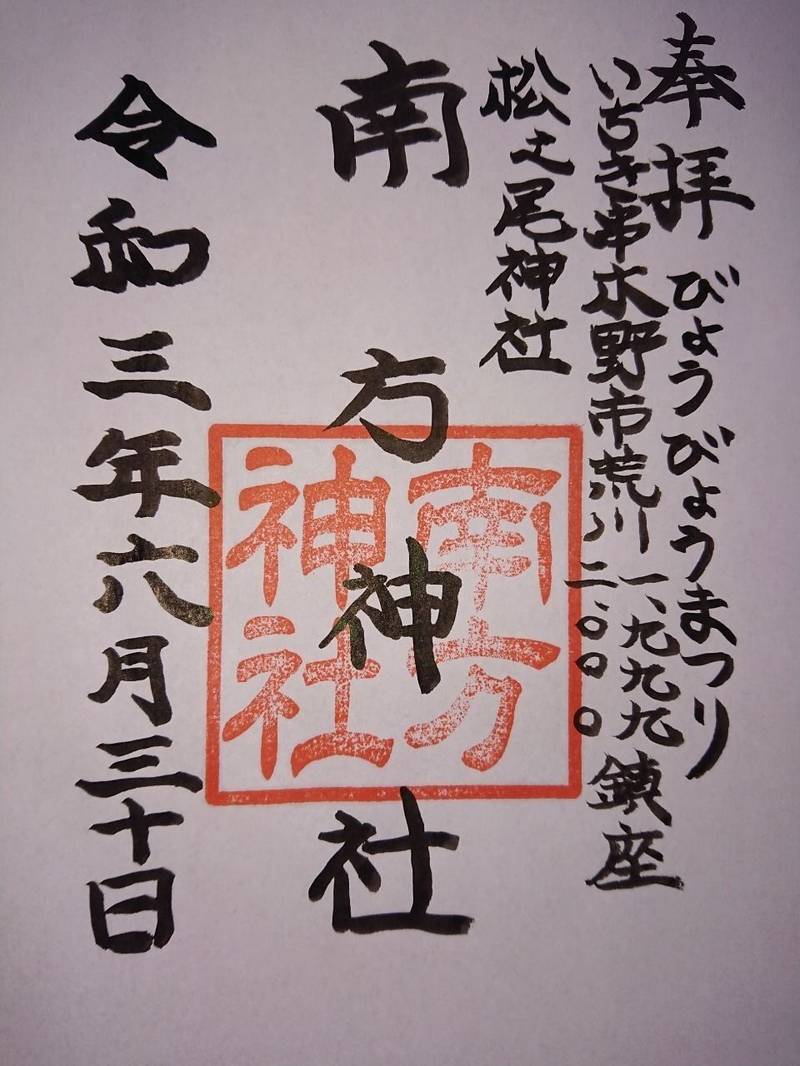 奉拝 びょうびょうまつり
いちき串木野市荒川一、九九九
二、〇〇〇鎮座
松之尾神社
南方神社
南方
神社
令和三年六月三十日